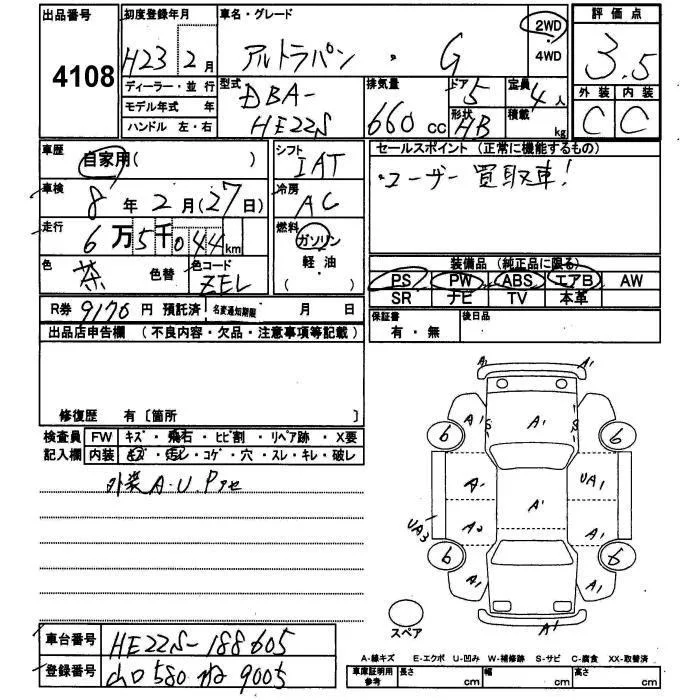 出品番号
4108
初度登録年月
H23 2月
車名・グレード
アルトラパン ・ G
2WD
4WD
評価点
3.5
外装 内装
C C
ディーラー・並行
モデル年式 年
ハンドル 左・右
型式
DBA-
HE22S
排気量
660 cc
ドア
5
形状
HB
定員
4人
積載
kg
車歴
自家用( )
車検
8年2月(27日)
走行
6万5千044km
色
茶
色替
色コード
ZEL
シフト
IAT
冷房
AC
燃料
ガソリン
軽・油
( )
セールスポイント (正常に機能するもの)
・ユーザー買取車!
装備品(純正品に限る)
PS PW ABS エアB AW
SR ナビ TV 本革
R券 9170 円 預託済
名変通知期限 月 日
保証書
有・無
後日品
出品店申告欄 (不良内容・欠品・注意事項等記載)
修復歴 有〔箇所
検査員
記入欄
FW キズ・飛石・ヒビ割・リペア跡・X要
内装 キズ・汚レ・コゲ・穴・スレ・キレ・破レ
外装A.U.P
A1 A1
A1 A1 A1
S S
6 6
A1 UA1
A1
UA3 A2
6 6
A1 A1
A1
スペア
車台番号
HE22S-188605
登録番号
山口 580 9005
A-線キズ E-エクボ U-凹み W-補修跡 S-サビ C-腐食 XX-取替済
車庫証明用
参考
長さ cm
幅 cm
高さ cm